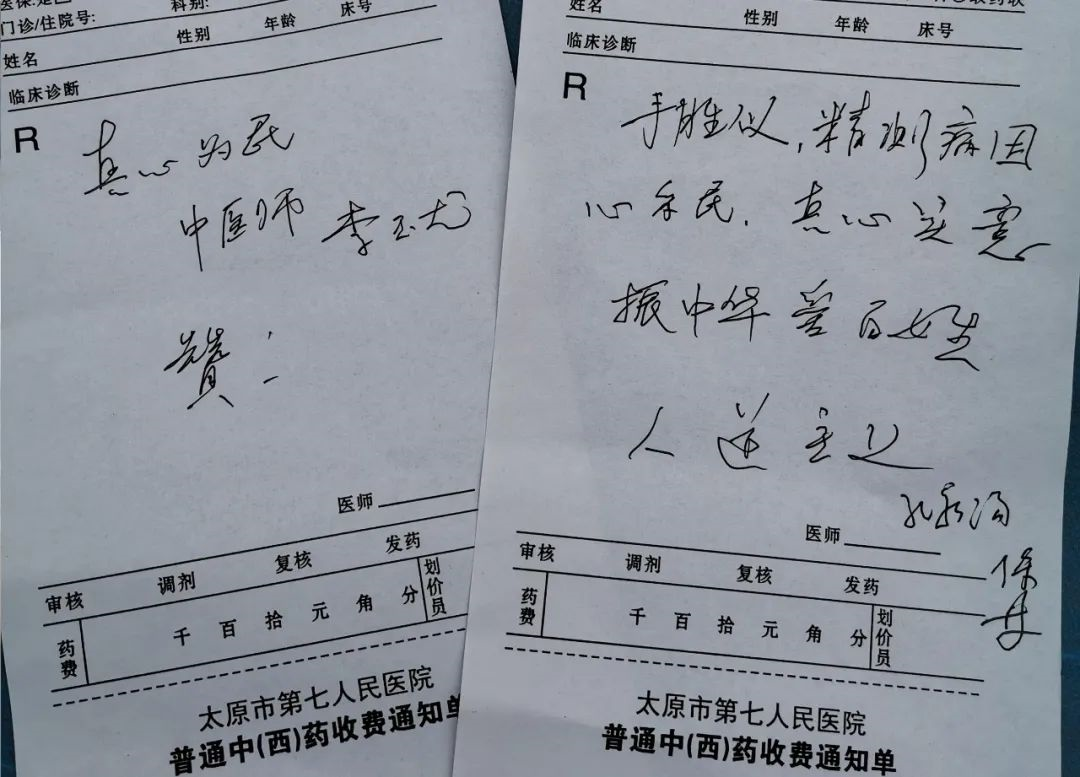 门诊/住院号: 科别:
姓名 性别 年龄 床号
临床诊断
R
真心为民
中医师 李玉尤
赞!
医师
审核 调剂 复核 发药
药费 千 百 拾 元 角 分 划价员
太原市第七人民医院
普通中(西)药收费通知单
姓名 性别 年龄 床号
临床诊断
R
手胜仪,精测病因
心系民.真心实意
振中华爱百姓
人道主义
医师
审核 调剂 复核 发药
药费 千 百 拾 元 角 分 划价员
太原市第七人民医院
普通中(西)药收费通知单